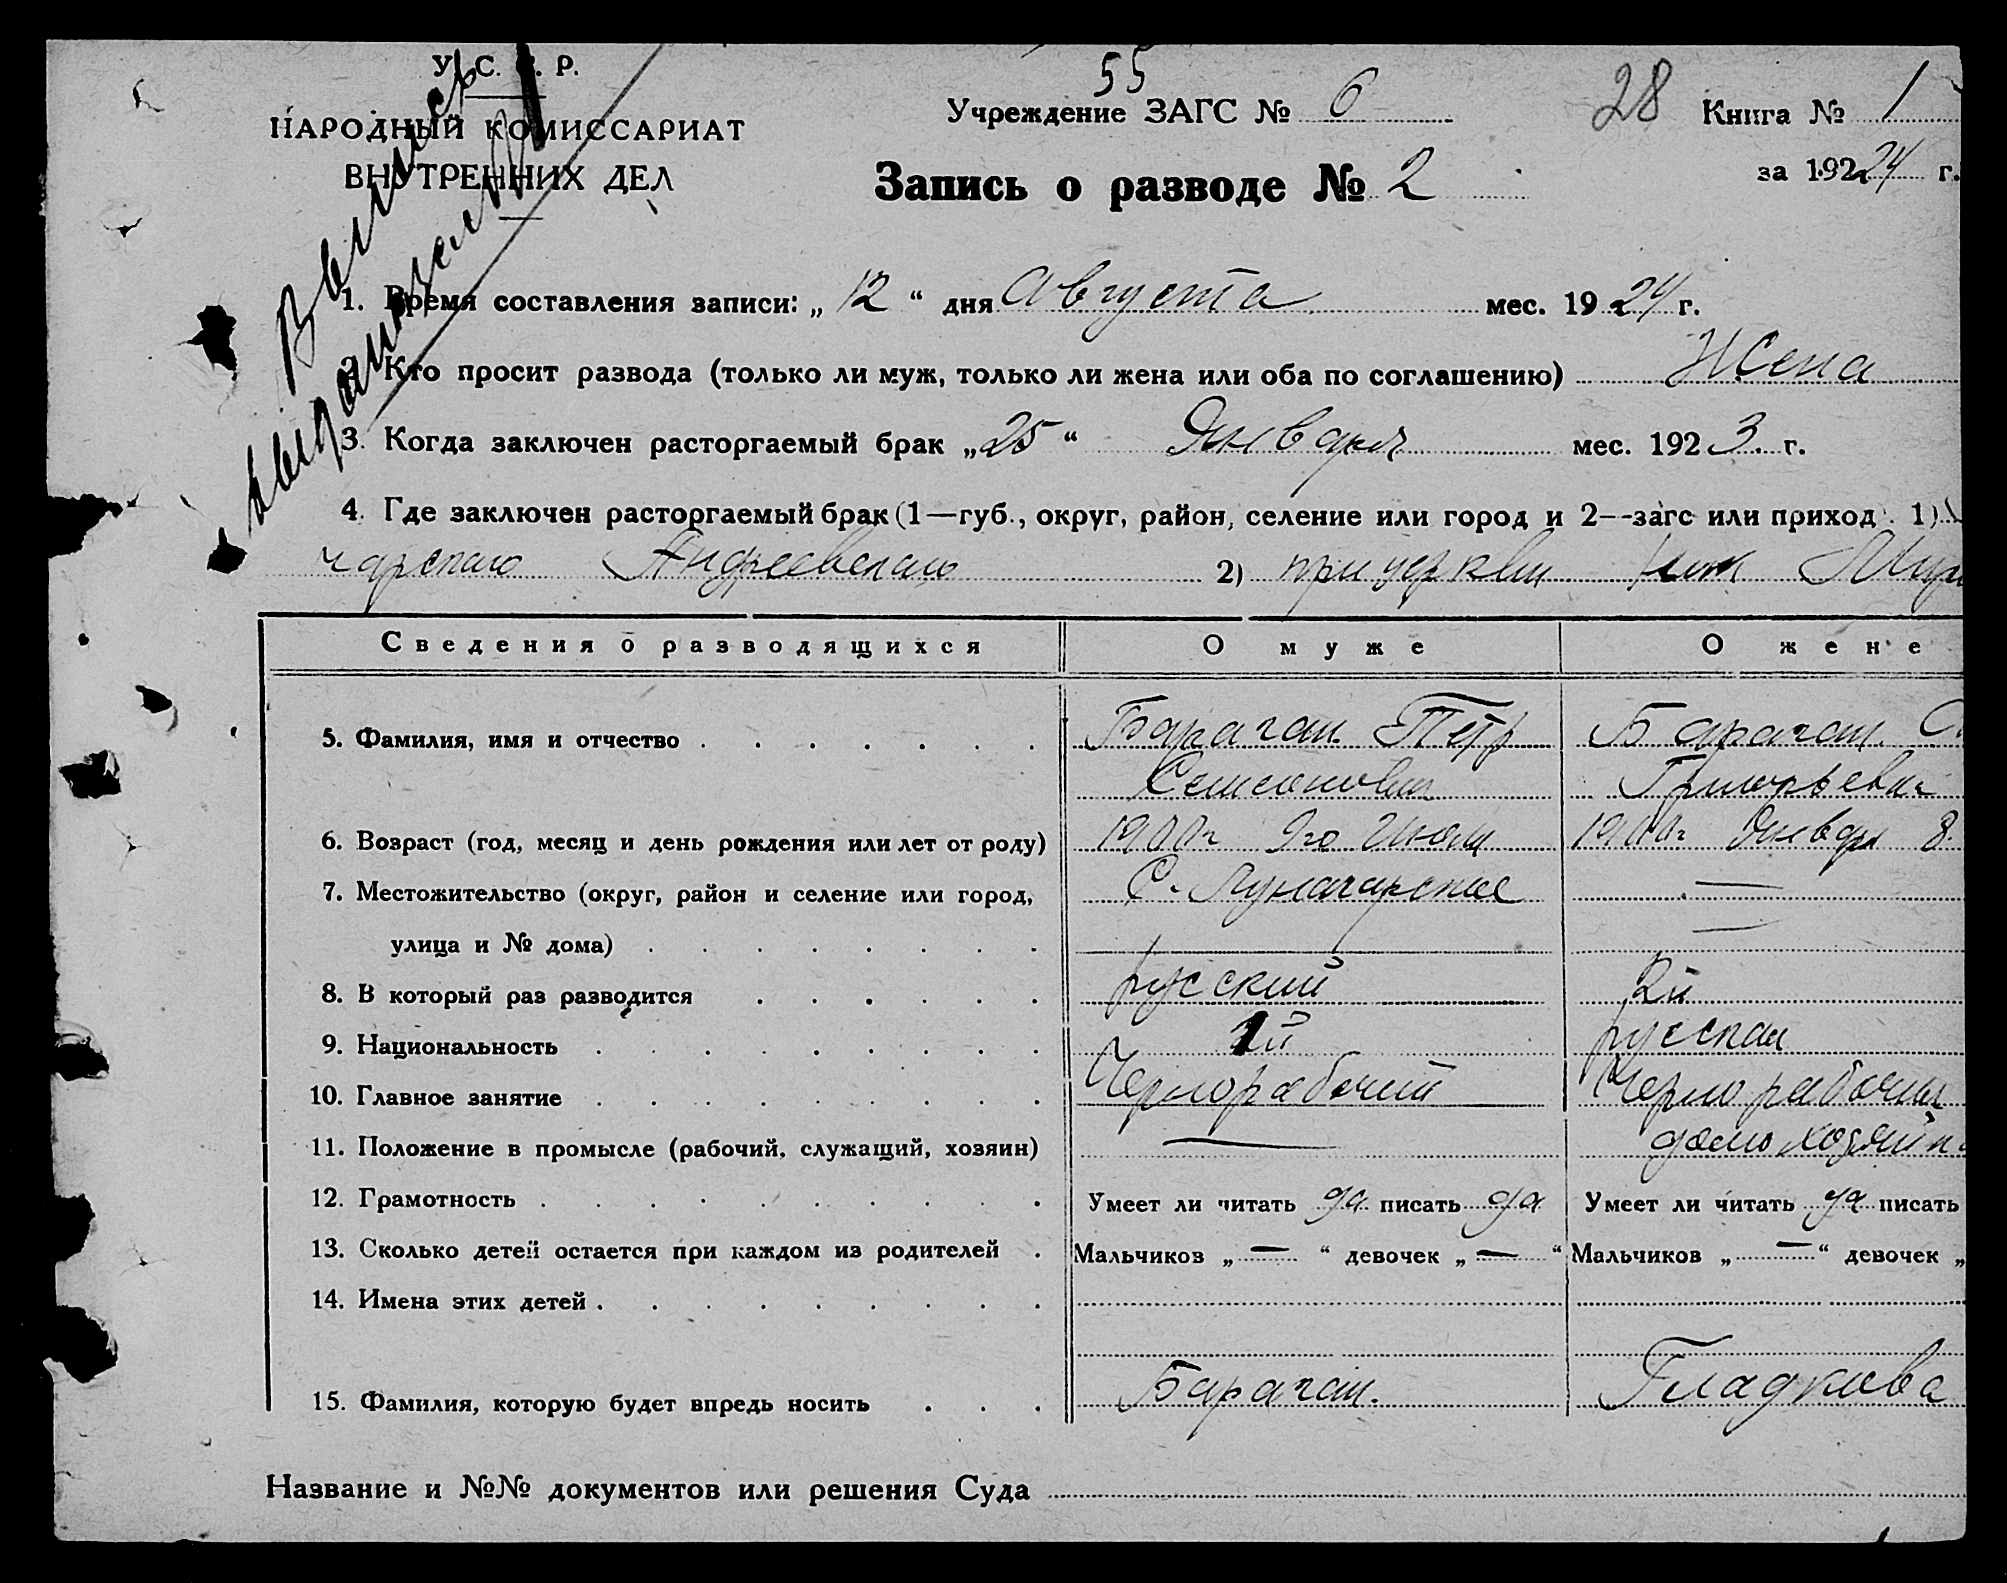 У. С. С. Р.
НАРОДНЫЙ КОМИССАРИАТ
ВНУТРЕННИХ ДЕЛ
Выпись
55
Учреждение ЗАГС № 6
28 Книга № 1
за 192 24 г.
Запись о разводе № 2
1. Время составления записи: „ 12 “ дня Августа мес. 19 24 г.
2. Кто просит развода (только ли муж, только ли жена или оба по соглашению) Жена
3. Когда заключен расторгаемый брак „ 25 “ Января мес. 192 3. г.
4. Где заключен расторгаемый брак (1—губ., округ, район, селение или город и 2—загс или приход). 1)
чарского Андреевского 2) при церкви
Сведения о разводящихся О муже О жене
5. Фамилия, имя и отчество Бараган Петр Бараган
Семенович Григорьевна
6. Возраст (год, месяц и день рождения или лет от роду) 1900 г Января 8.
7. Местожительство (округ, район и селение или город, С. Луначарское —
улица и № дома) —
8. В который раз разводится русский 2й
9. Национальность русская
10. Главное занятие Чернорабочий Чернорабочая
11. Положение в промысле (рабочий, служащий, хозяин) —
12. Грамотность Умеет ли читать да писать да Умеет ли читать да писать
13. Сколько детей остается при каждом из родителей Мальчиков „ — “ девочек „ — “ Мальчиков „ — “ девочек „
14. Имена этих детей
15. Фамилия, которую будет впредь носить Бараган. Гладкова
Название и №№ документов или решения Суда